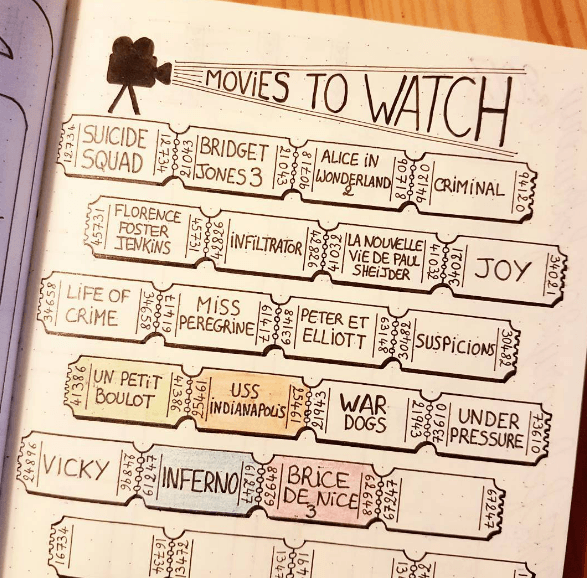 MOVIES TO WATCH
12734 SUICIDE SQUAD 12734
21043 BRIDGET JONES 3 21043
ALICE IN WONDERLAND 2
CRIMINAL
45731 FLORENCE FOSTER JENKINS 45731
42826 INFILTRATOR 42826
LA NOUVELLE VIE DE PAUL SHEIJDER
34021 JOY 34021
34658 LIFE OF CRIME 34658
61417 MISS PEREGRINE 61417
63148 PETER ET ELLIOTT 63148
30482 SUSPICIONS 30482
41386 UN PETIT BOULOT 41386
USS INDIANAPOLIS
21943 WAR DOGS 21943
73610 UNDER PRESSURE 73610
24896 VICKY 24896
61247 INFERNO 61247
62648 BRICE DE NICE 3 62648
67247
16734 16734
13472